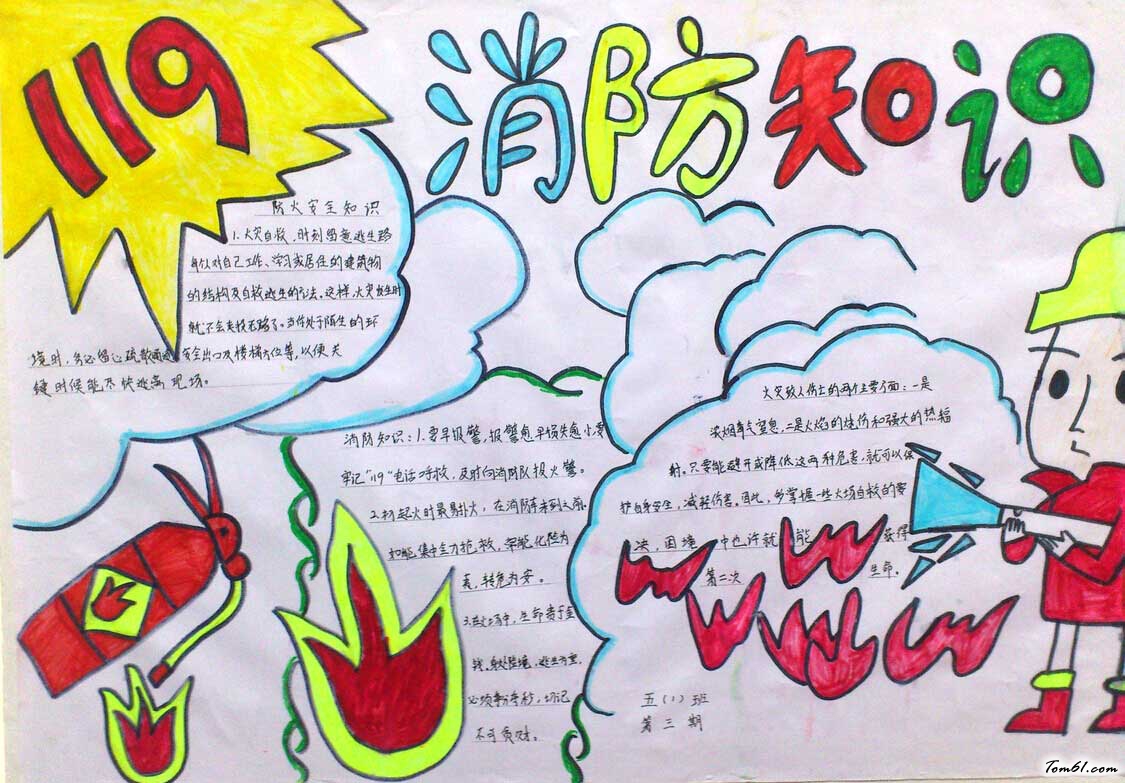 119
消防知识
防火安全知识
1.火灾自救,时刻留意逃生路
每个人对自己工作、学习或居住的建筑物
的结构及自救逃生的方法。这样,火灾发生时
就不会走投无路了。当你处于陌生的环
境时,务必留心疏散通道、安全出口及楼梯方位等,以便关
键时候能尽快逃离现场。
消防知识:1.要早报警,报警愈早损失愈小,要
牢记"119"电话呼救,及时向消防队报火警。
2.初起火时最易扑火,在消防车未到之前,
如能集中全力抢救,常能化险为
夷,转危为安。
3.在火场中,生命贵于金
钱,身处险境,逃生为重,
必须争分夺秒,切记
不可贪财。
火灾致人伤亡的两个主要方面:一是
浓烟毒气窒息,二是火焰的烧伤和强大的热辐
射。只要能避开或降低这两种危害,就可以保
护自身安全,减轻伤害。因此,多掌握一些火场自救的要
决,困境中也许就能获得
第二次生命。
五(1)班
第三期
Tom61.com